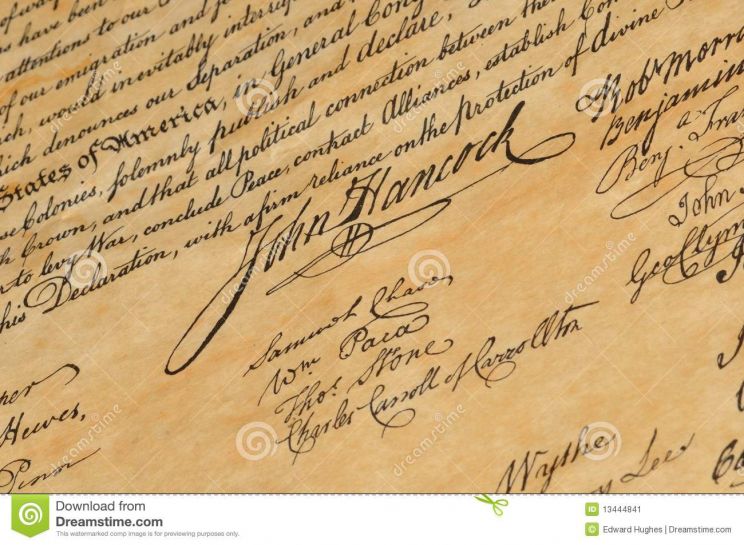 of way
us have been
attentions to our
of our emigration and
would inevitably interrupt
which denounces our Separation, and
States of America, in General Cong
se Colonies, solemnly publish and declare,
Crown, and that all political connection between the
to levy War, conclude Peace, contract Alliances, establish Com
his Declaration, with a firm reliance on the Protection of divine
John Hancock
Robt Morri
Benjamin
Benj. Fra
John
Geo Clym
Samuel Chase
Wm Paca
Thos Stone
Charles Carroll of Carrollton
her
Hewes,
Penn
Wythe
Lee
dreamstime
Download from
Dreamstime.com
This watermarked comp image is for previewing purposes only.
ID 13444841
© Edward Hughes | Dreamstime.com